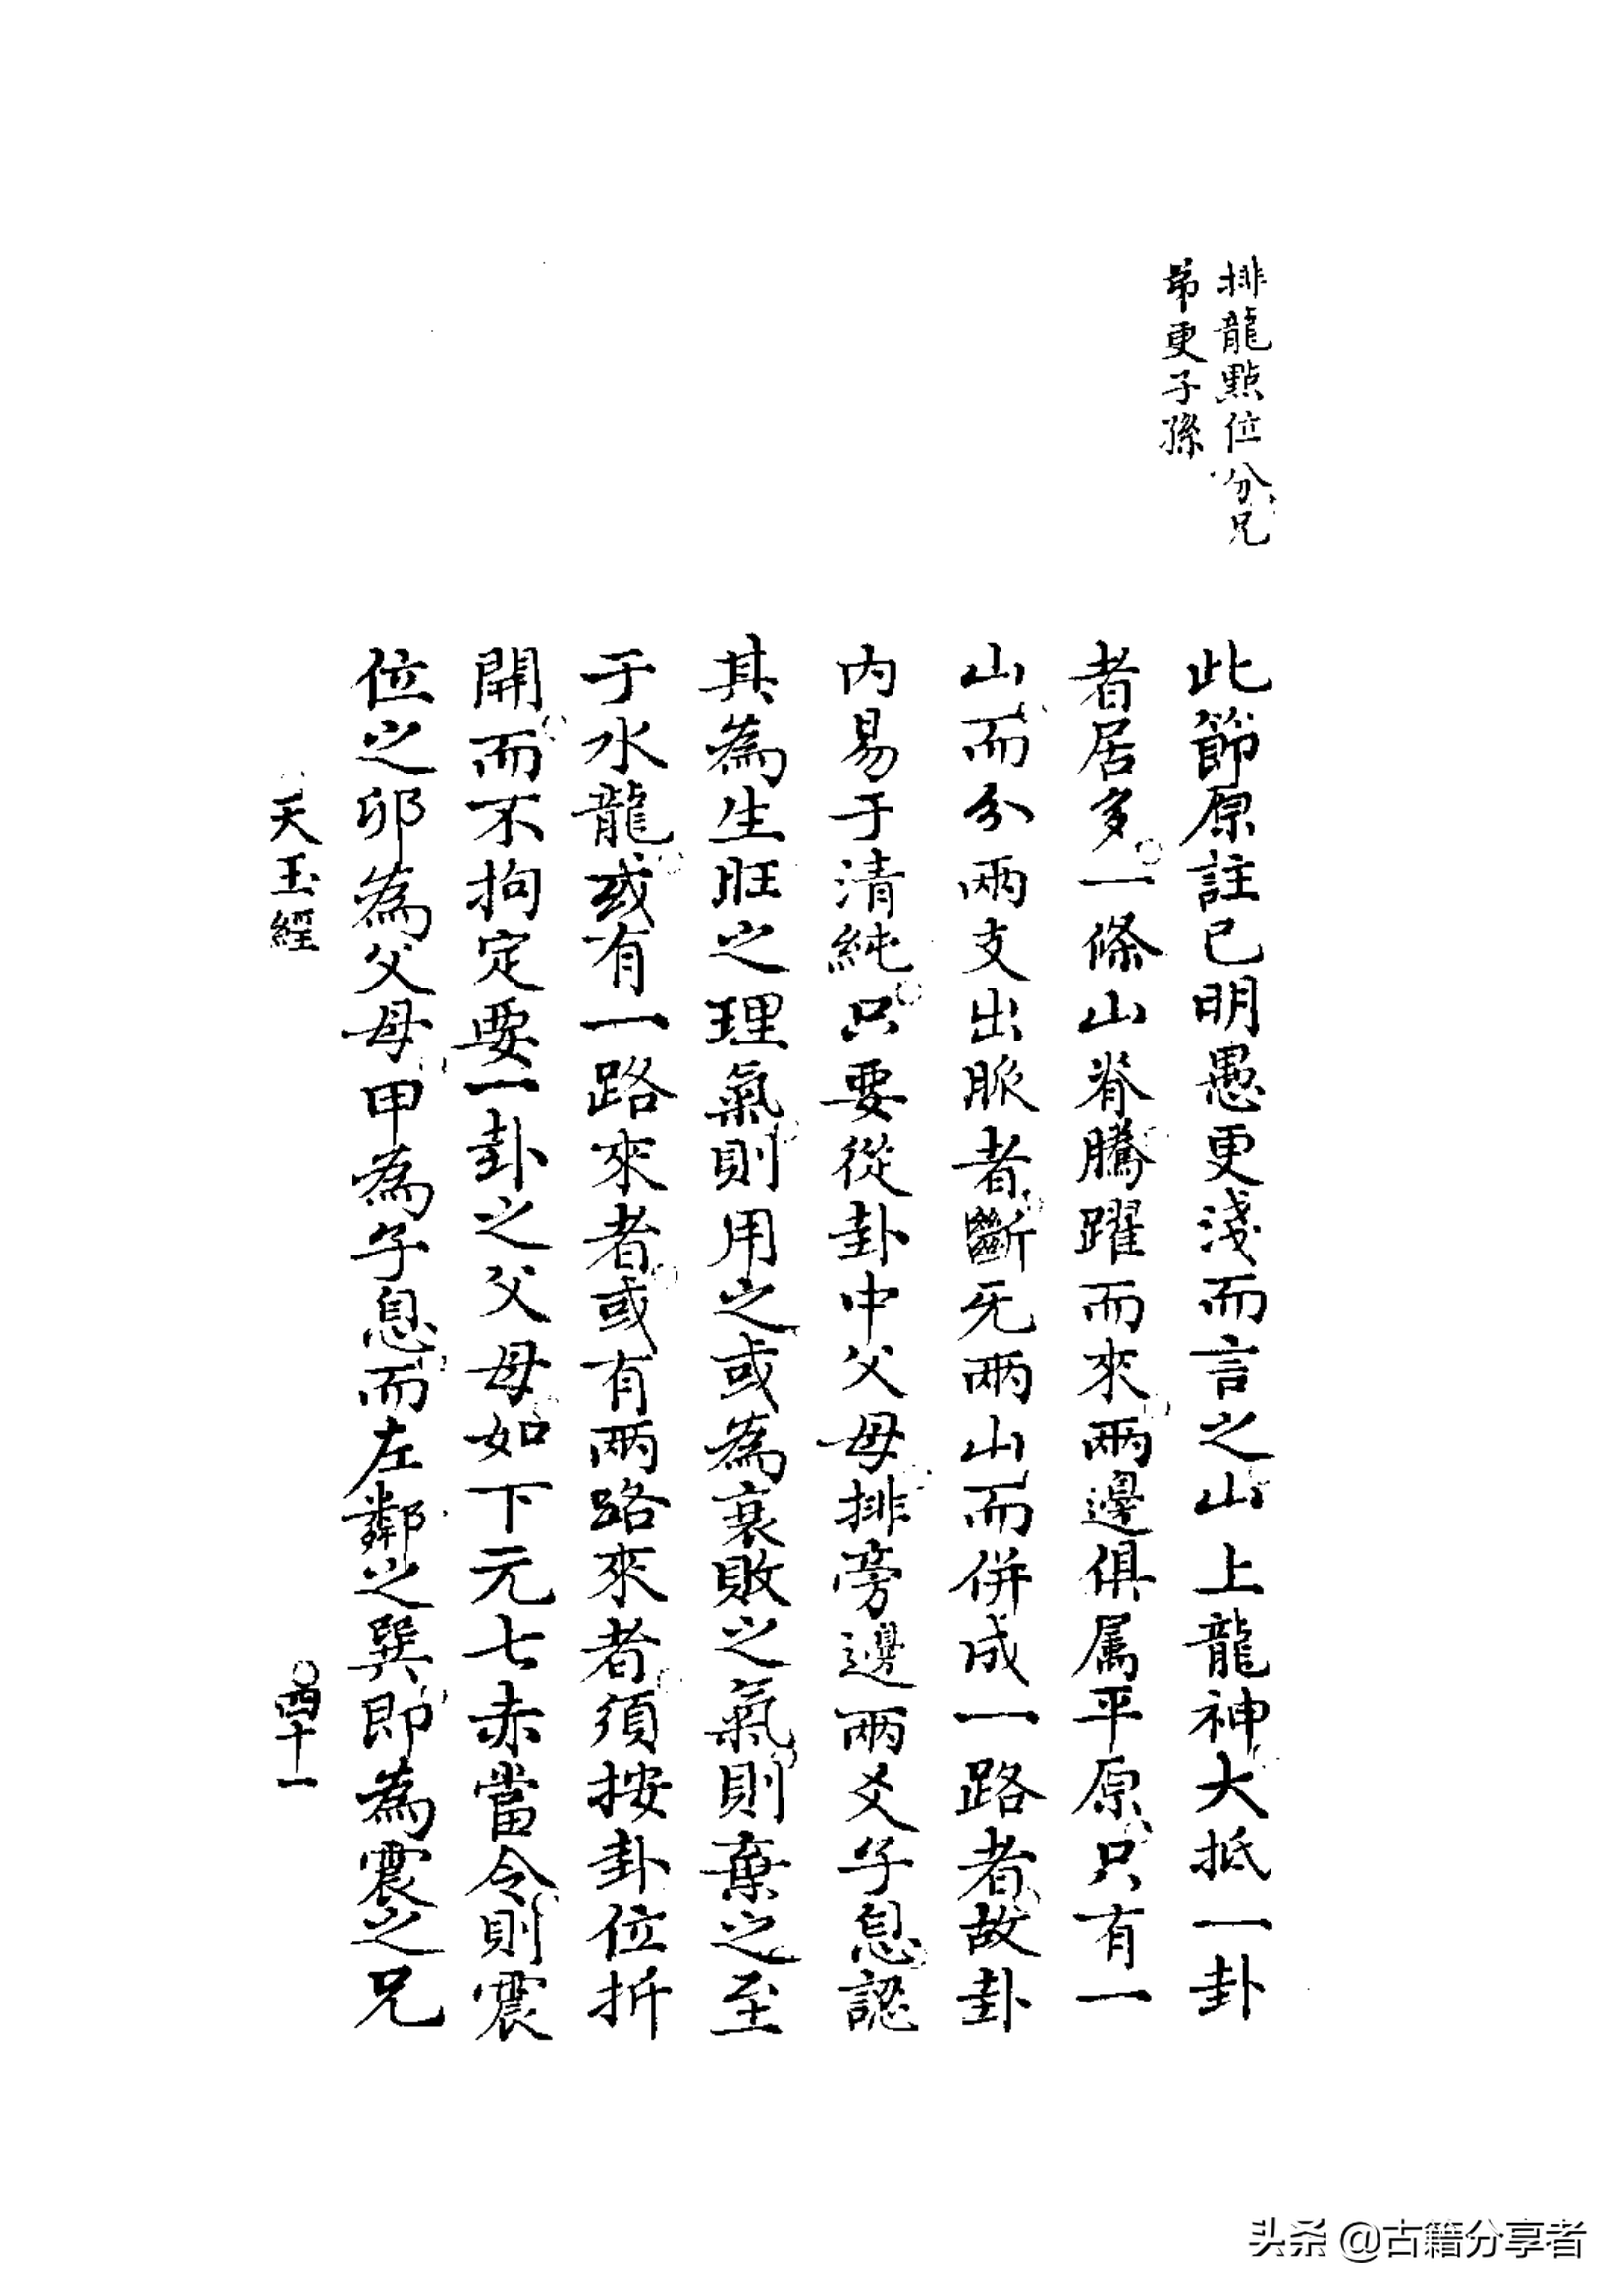 排龍點位分兄
弟更子孫
此節原註已明愚更淺而言之山上龍神大抵一卦
者居多一條山脊騰躍而來兩邊俱属平原只有一
山而分兩支出脈者斷无兩山而併成一路者故卦
内易于清純只要從卦中父母排旁邊兩爻子息認
其為生旺之理氣則用之或為衰敗之氣則棄之至
于水龍或有一路來者或有兩路來者須按卦位折
開而不拘定要一卦之父母如下元七赤當令則震
位之卯為父母甲為子息而左鄰之巽即為震之兄
天玉經
四十一
头条 @古籍分享者